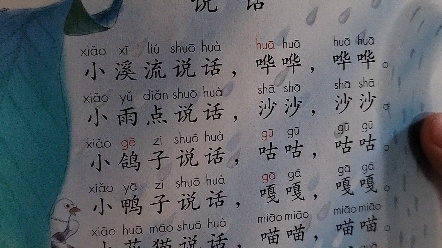 说 话
xiǎo xī liú shuō huà huā huā huā huā
小溪流说话，哗哗，哗哗。
xiǎo yǔ diǎn shuō huà shā shā shā shā
小雨点说话，沙沙，沙沙。
xiǎo gē zi shuō huà gū gū gū gū
小鸽子说话，咕咕，咕咕。
xiǎo yā zi shuō huà gā gā gā gā
小鸭子说话，嘎嘎，嘎嘎。
xiǎo huā māo shuō huà miāo miāo miāo miāo
小花猫说话，喵喵，喵喵。